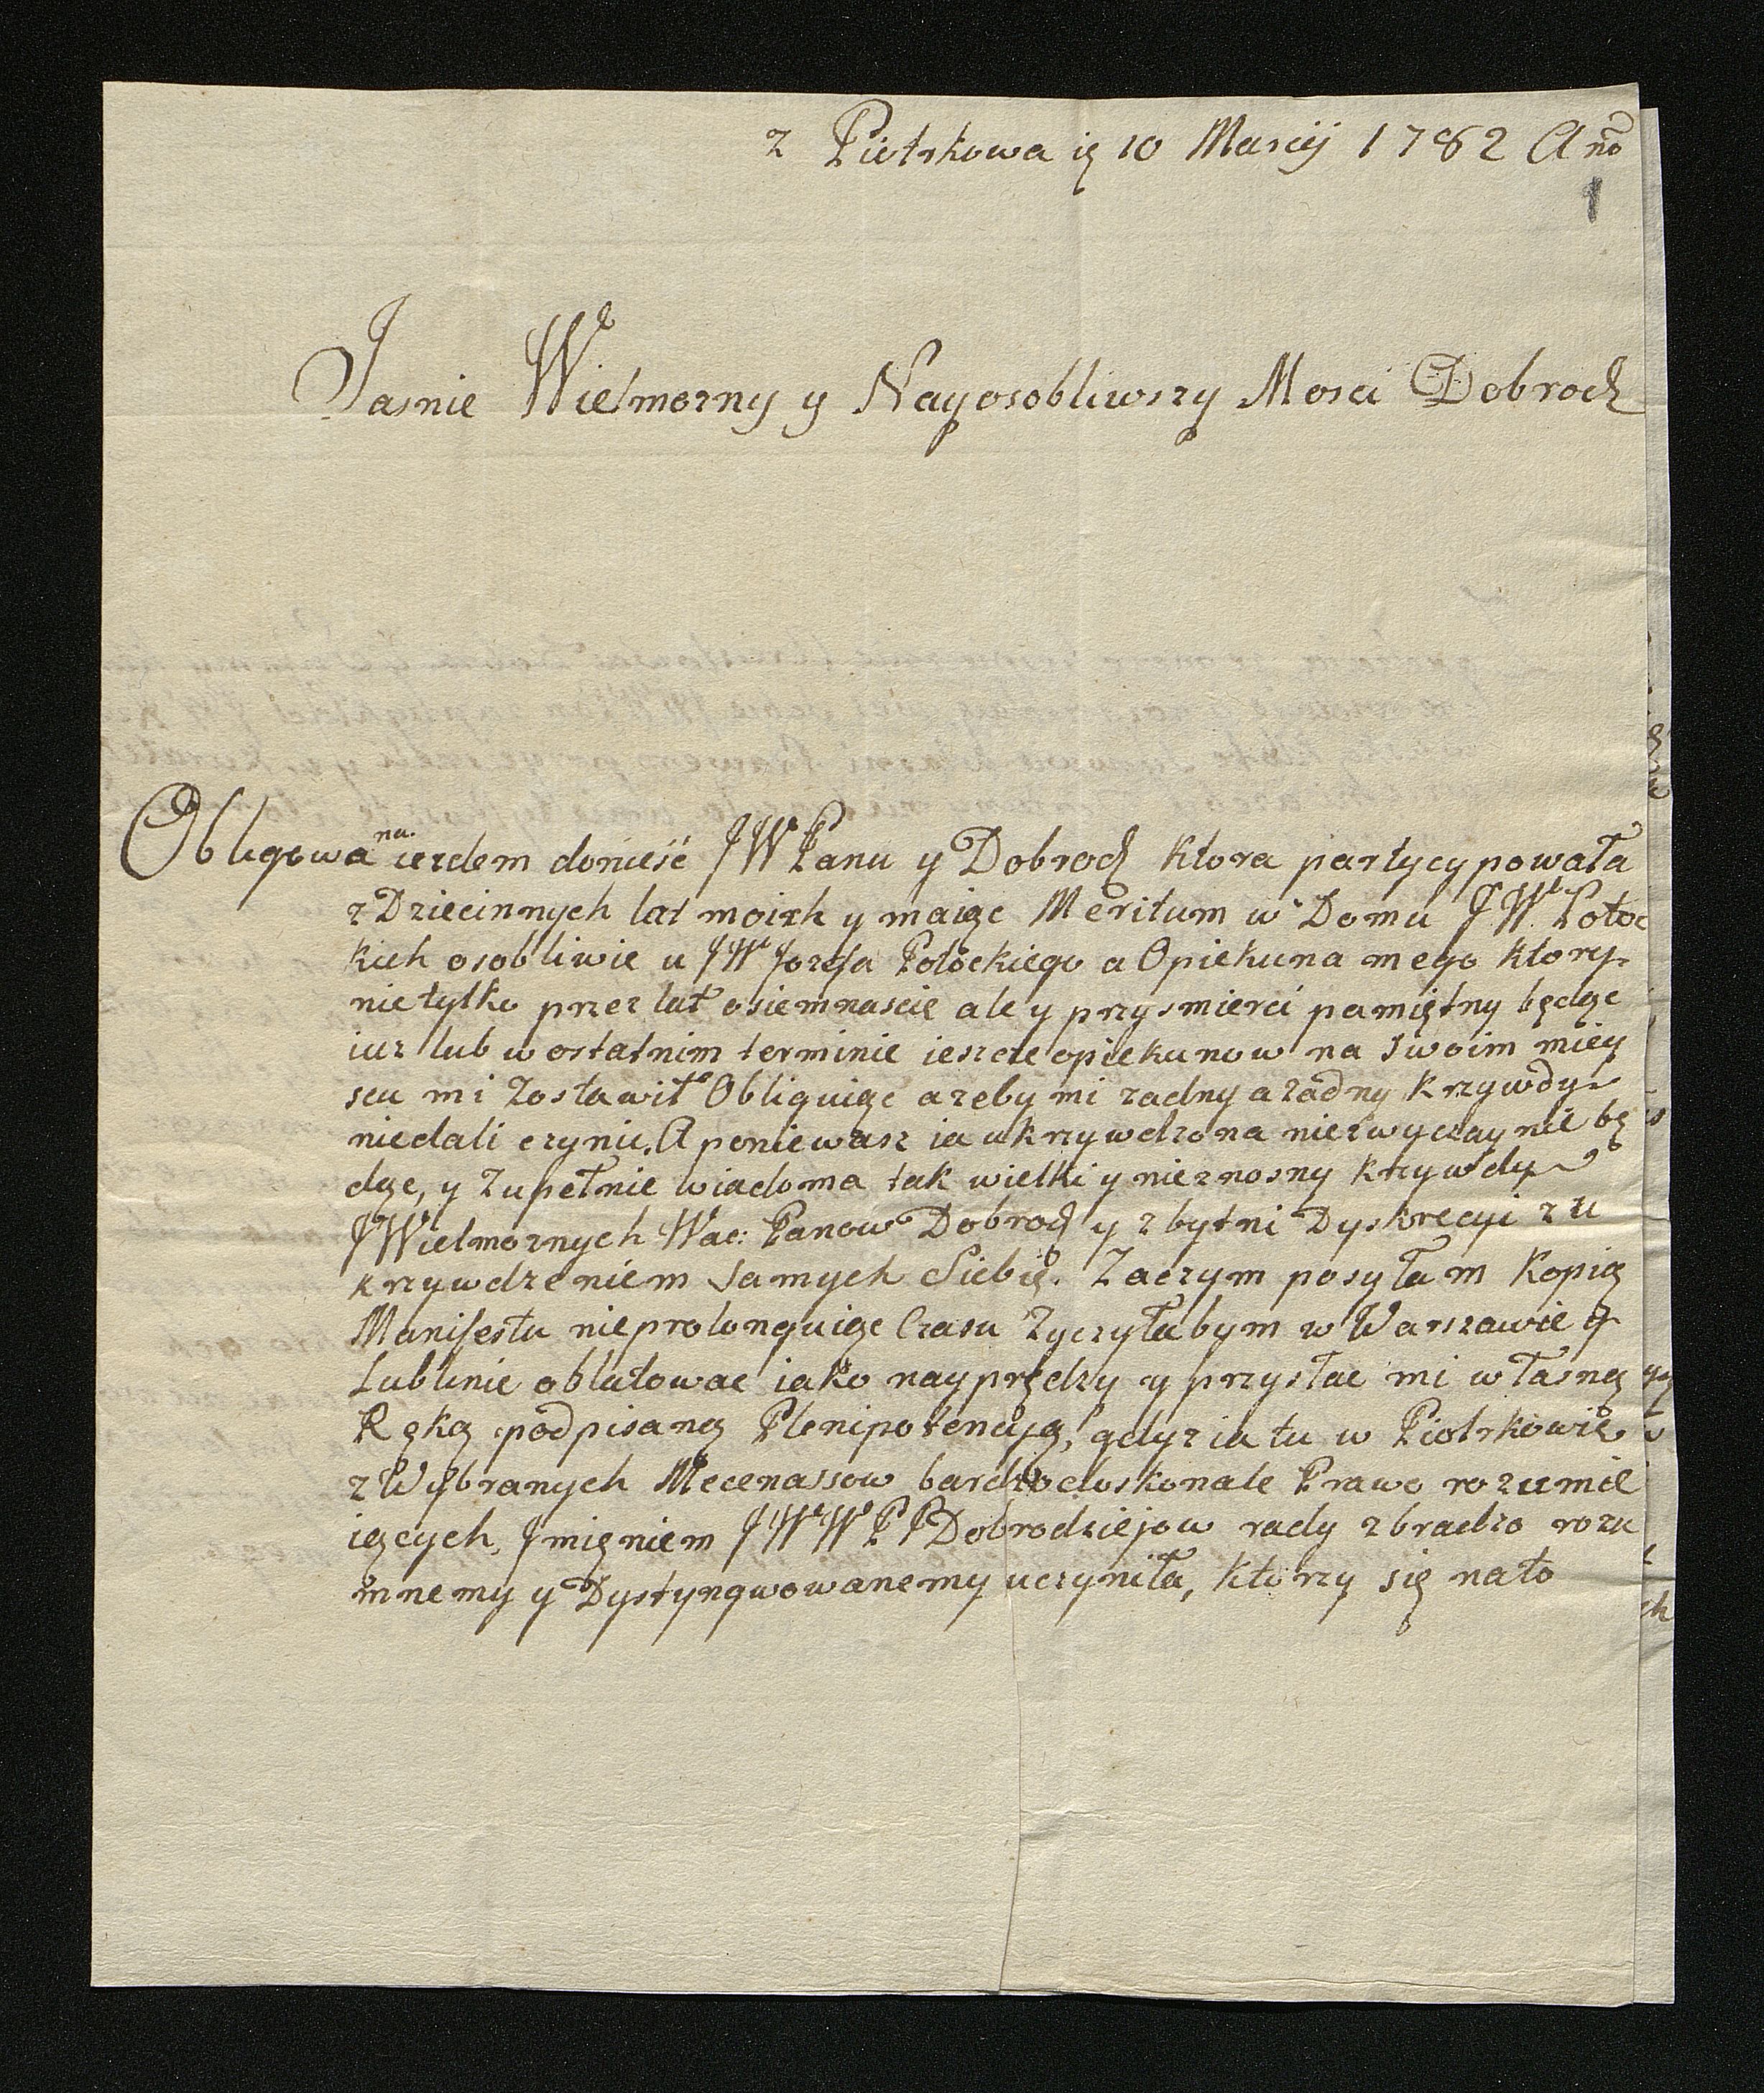 z Piotrkowa ię 10 Marcij 1782 Ano
1
Jasnie Wielmozny y Nayosobliwszy Mosci Dobrodz
Obligowana iezdem donieść JW Panu y Dobrodz ktora partycypowała
z Dziecinnych lat moizh y maiąc Meritum w Domu JW. Potoc
kich osobliwie u JW Jozefa Potockiego a Opiekuna mego ktory
nietylko przez lat osiemnascie ale y przysmierci pamiętny będąc
iuz lub w ostatnim terminie ieszcze opiekunow na swoim miey
scu mi zostawił Obliguiąc azeby mi zadny azadny krzywdy
niedali czynic. A poniewasz ia ukrzywdzona niezwyczaynie bę
dąc, y zupełnie wiadoma tak wielki y nieznosny krzywdy
JWielmoznych Wac: Panow Dobrodz y zbytni Dyskrecyi z u
krzywdzeniem samych Siebię. Zaczym posyłam Kopią
Manifestu nieprolonguiąc Czasu Zyczyłabym w Warszawie y
Lublinie oblatowac iako nayprędzy y przysłac mi własną
Ręką podpisaną Plenipotencyją, gdyz ia tu w Piotrkowie
z Wybranych Mecenassow bardzo doskonale Prawo rozumie
iących, Jmięniem JWW PP Dobrodziejow rady zbradzo rozu
mnemy y Dystyngwowanemy uczyniła, ktorzy się nato